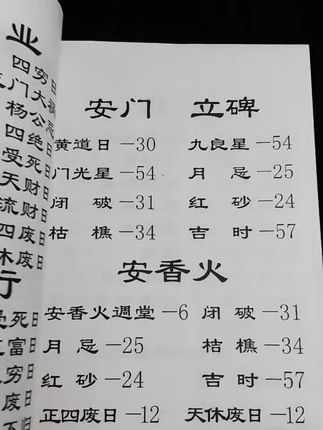 业
四穷日
门大
杨公
四绝日
受死日
天财日
流财日
四废日
休废日
行
受死日
富日
穷日
废日
安门 立碑
黄道日—30 九良星—54
门光星—54 月忌—25
闭破—31 红砂—24
枯樵—34 吉时—57
安香火
安香火週堂—6 闭破—31
月忌—25 枯樵—34
红砂—24 吉时—57
正四废日—12 天休废日—12